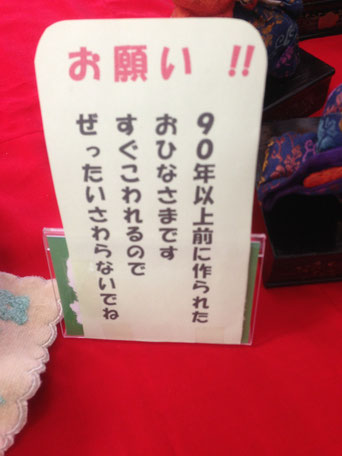 お願い !!
90年以上前に作られた
おひなさまです
すぐこわれるので
ぜったいさわらないでね